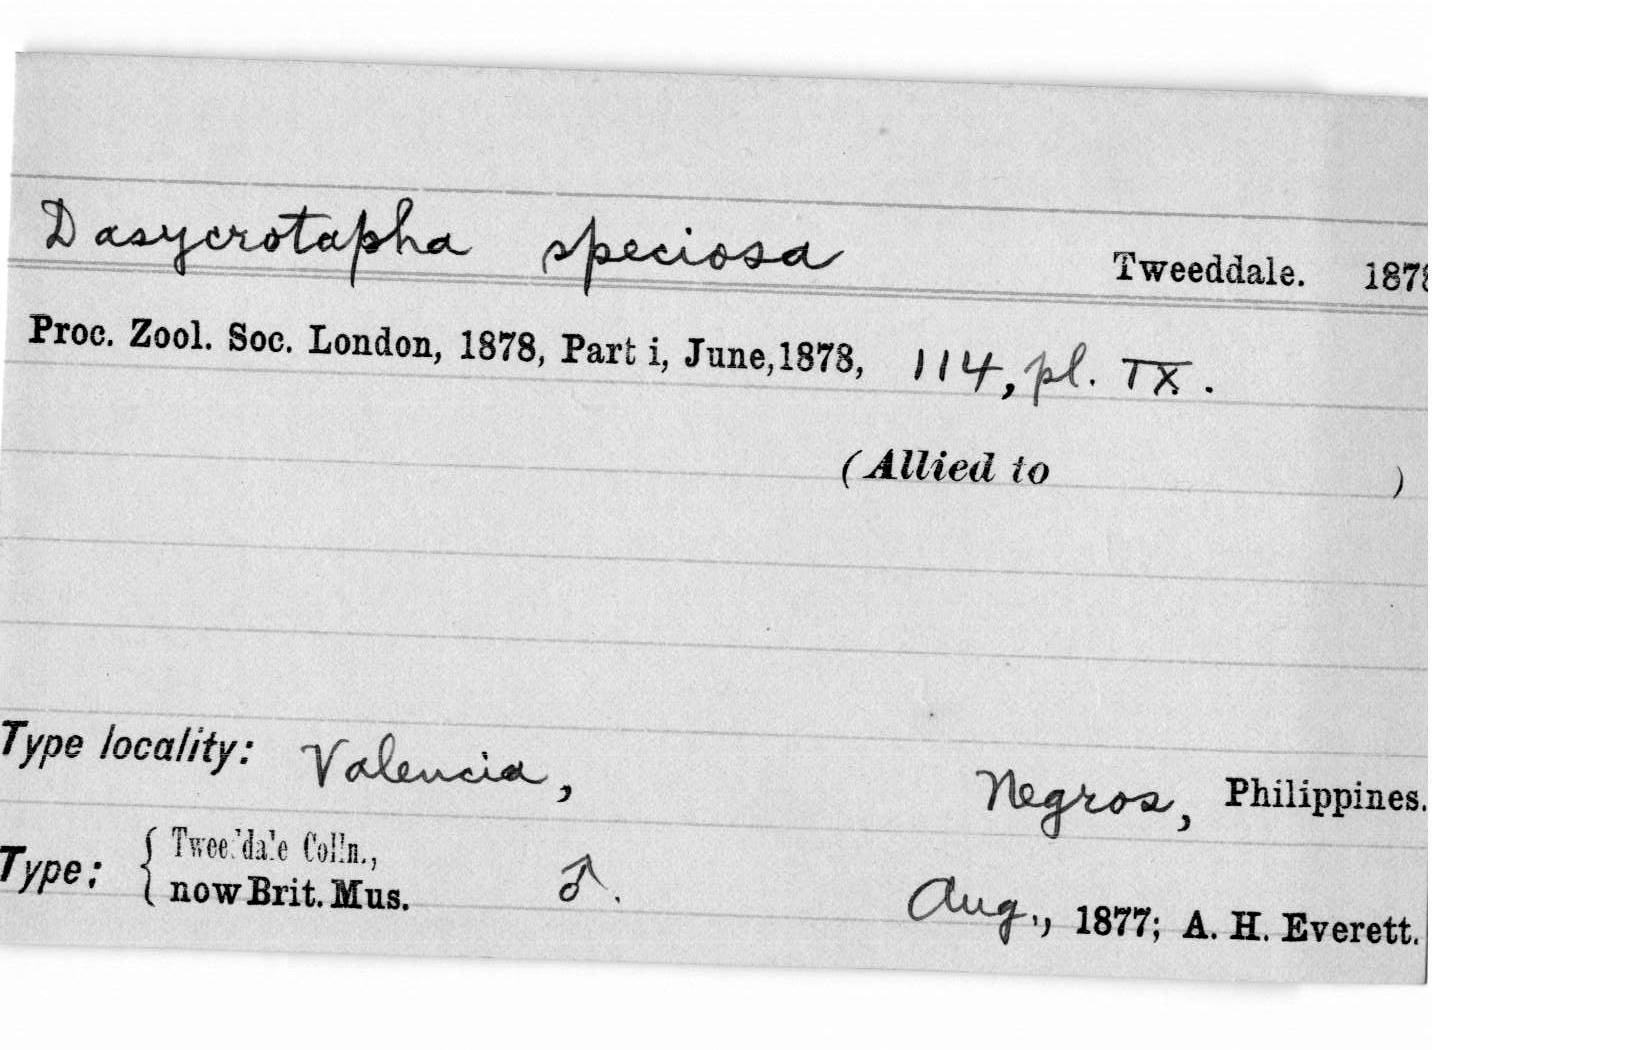 Dasycrotapha speciosa Tweeddale. 1878
Proc. Zool. Soc. London, 1878, Part i, June, 1878, 114, pl. IX.
(Allied to )
Type locality: Valencia, Negros, Philippines.
Type: { Tweeddale Colln.,
now Brit. Mus. ♂. Aug., 1877; A. H. Everett.